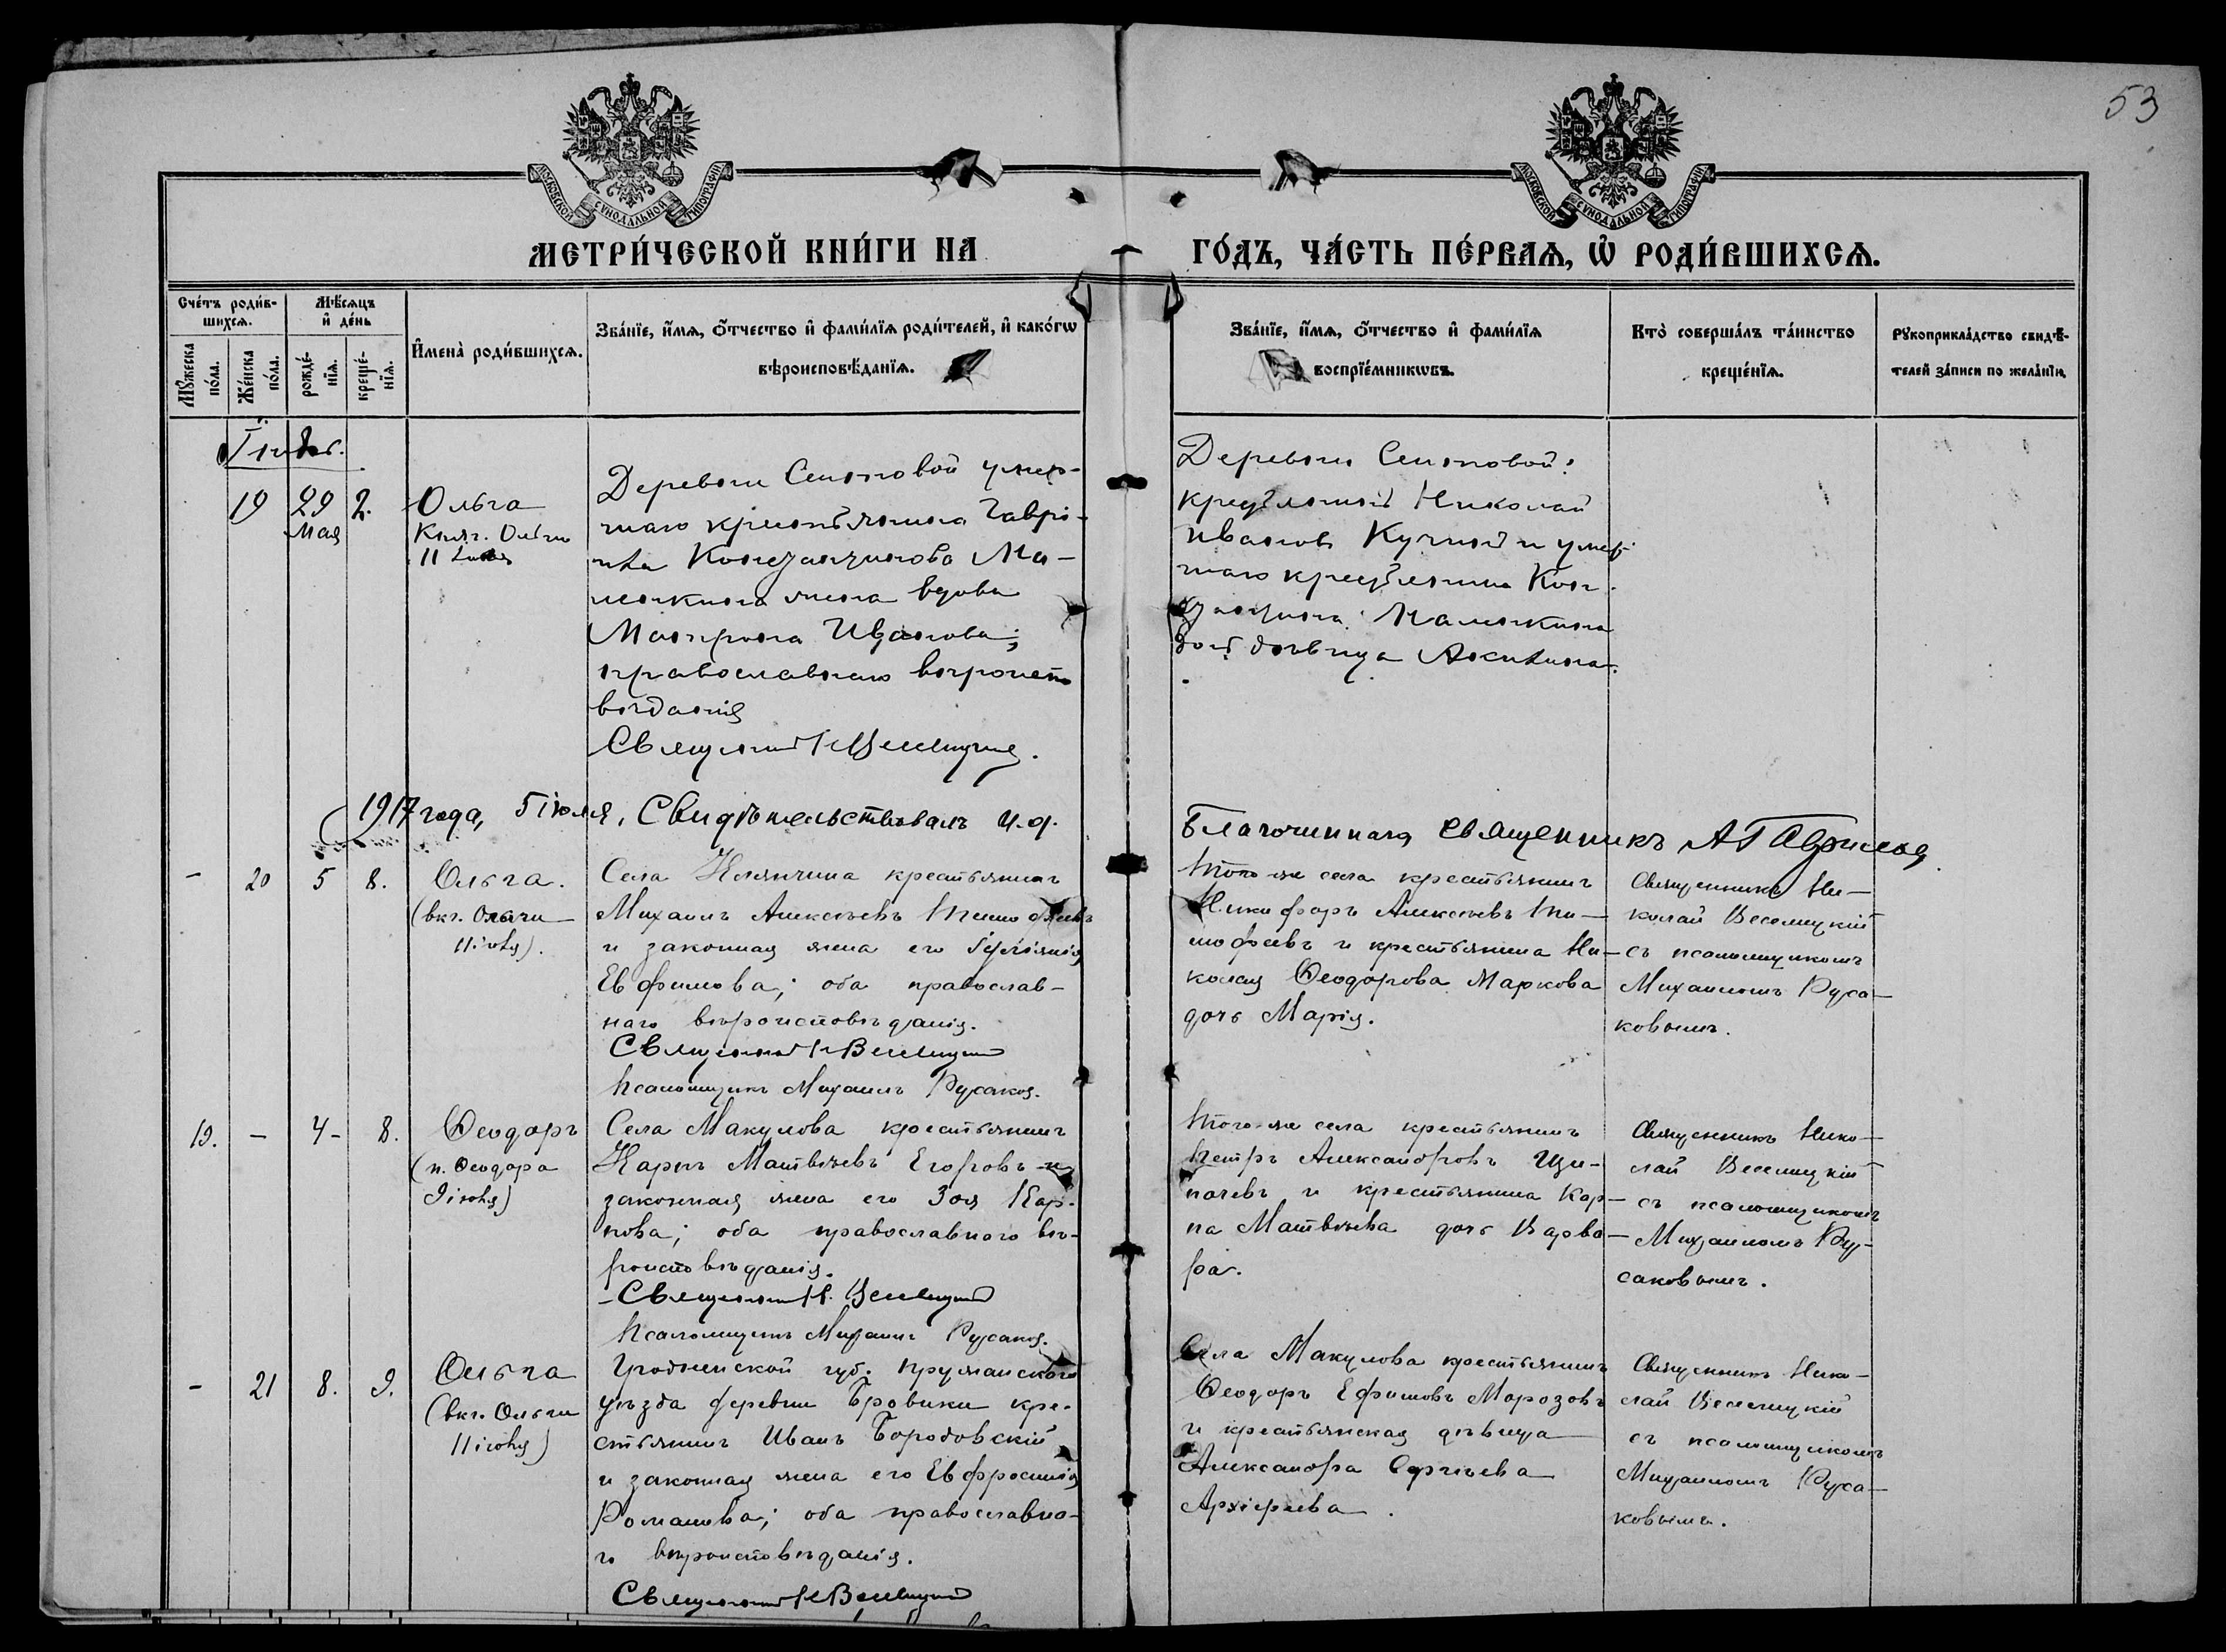 53
МОСКОВСКОЙ СѴНОДАЛЬНОЙ ТИПОГРАФІИ
МОСКОВСКОЙ СѴНОДАЛЬНОЙ ТИПОГРАФІИ
МЕТРИ́ЧЕСКОЙ КНИ́ГИ НА ГО́ДЪ, ЧА́СТЬ ПЕ́РВАѦ, Ѽ РОДИ́ВШИХСѦ.
Сче́тъ роди́в-
шихсѧ.
Мѣ́сѧцъ
и де́нь
Мꙋжеска
по́ла.
Же́нска
по́ла.
рожде́-
нїѧ.
креще́-
нїѧ.
Имена̀ роди́вшихсѧ.
Зва́нїе, и́мѧ, о́тчество и фами́лїѧ роди́телей, и како́гѡ
вѣроисповѣ́данїѧ.
Зва́нїе, и́мѧ, о́тчество и фами́лїѧ
воспрїе́мникѡвъ.
Кто̀ соверша́лъ та́инство
креще́нїѧ.
Рꙋкоприкла́дство свидѣ́-
телей за́писи по жела́нїю.
19 29 2.
Мая
Ольга
Княг. Ольги
11 Іюля
Деревни Сеитовой умер-
шаго крестьянина Гаврі-
ила Константинова Ма-
жена вдова
Матрона Иванова;
православнаго вѣроиспо
вѣданія
Священникъ Н Веселицкій.
Деревни Сеитовой:
крестьянинъ Николай
Ивановъ и умер-
шаго крестьянина Кон-
стантина
дочь дѣвица Акилина.
1917 года, 5 іюля, Свидѣтельствовалъ и.д.
Благочиннаго священникъ А
- 20 5 8.
Ольга.
(вкг. Ольги
11 іюля).
Села Ключища крестьянинъ
Михаилъ Алексѣевъ Тимофеевъ
и законная жена его Іуліанія
Евфимова; оба православ-
наго вѣроисповѣданія.
Священникъ Н Веселицкій
Псаломщикъ Михаилъ Русаковъ.
Того же села крестьянинъ
Никифоръ Алексѣевъ Ти-
мофеевъ и крестьянина Ни-
колая Ѳеодорова Маркова
дочь Марія.
Священникъ Ни-
колай Веселицкій
съ псаломщикомъ
Михаиломъ Руса-
ковымъ.
19. - 4- 8.
Ѳеодоръ
(п. Ѳеодора
9 іюля)
Села Макулова крестьянинъ
Карпъ Матвѣевъ Егоровъ и
законная жена его Зоя Кар-
пова; оба православнаго вѣ-
роисповѣданія.
Священникъ Н. Веселицкій
Псаломщикъ Михаилъ Русаковъ.
Того-же села крестьянинъ
Петръ Александровъ Щи-
пачевъ и крестьянина Кар-
па Матвѣева дочь Варва-
ра.
Священникъ Нико-
лай Веселицкій
съ псаломщикомъ
Михаиломъ Ру-
саковымъ.
- 21 8. 9.
Ольга
(вкг. Ольги
11 іюля)
Гродненской губ. Пружанскаго
уѣзда деревни Бровики кре-
стьянинъ Иванъ Бородовскій
и законная жена его Евфросинія
Романова; оба православна-
го вѣроисповѣданія.
Священникъ Н Веселицкій
Села Макулова крестьянинъ
Ѳеодоръ Ефимовъ Морозовъ
и крестьянская дѣвица
Александра Сергѣева
Архіреева.
Священникъ Нико-
лай Веселицкій
съ псаломщикомъ
Михаиломъ Руса-
ковымъ.